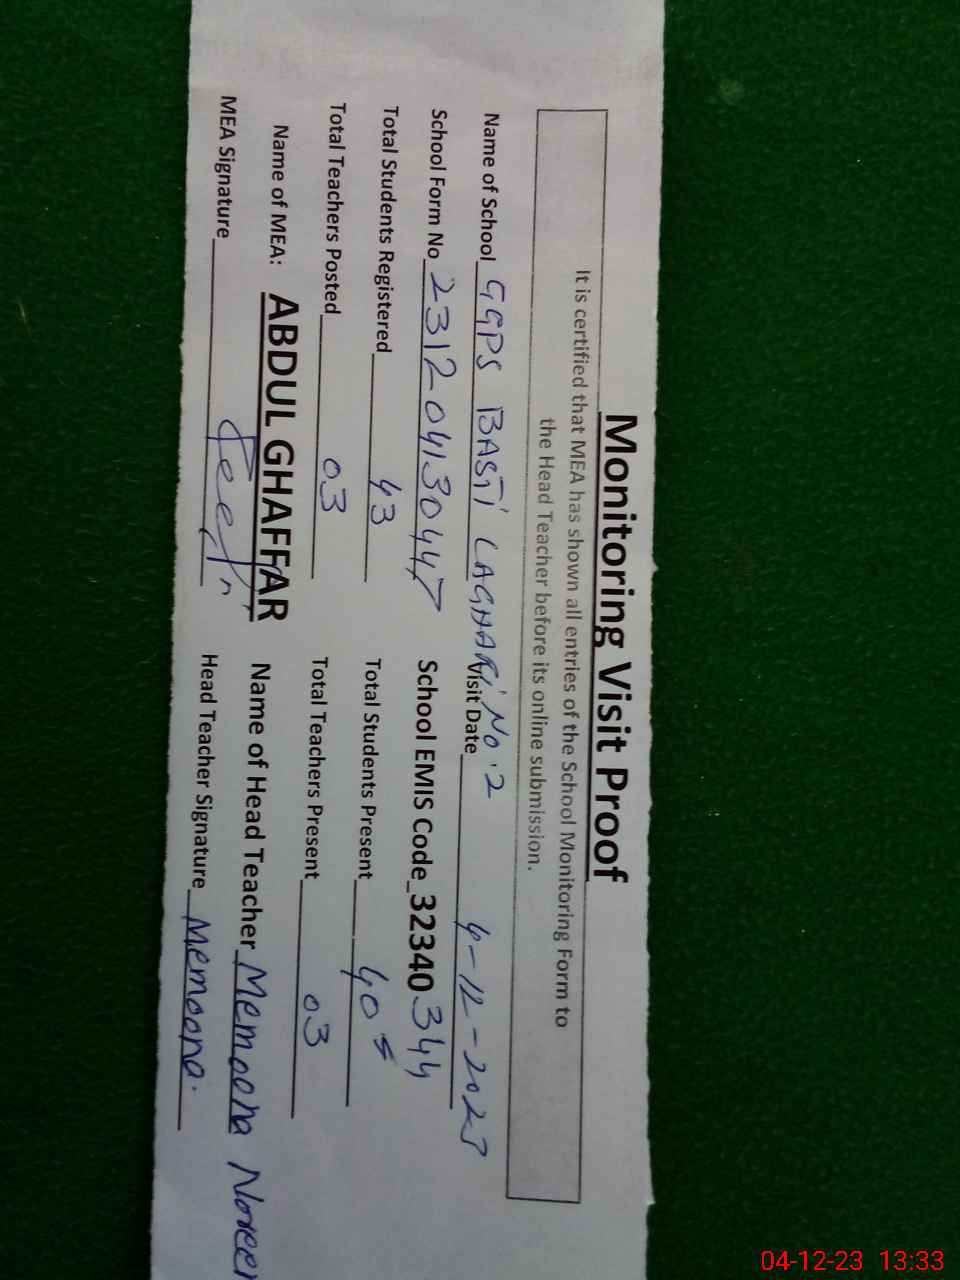 Monitoring Visit Proof
It is certified that MEA has shown all entries of the School Monitoring Form to
the Head Teacher before its online submission.
Name of School GGPS BASTI LAGHARI NO.2 Visit Date 4-12-2023
School Form No 231204130447 School EMIS Code_32340344
Total Students Registered 43 Total Students Present 40
Total Teachers Posted 03 Total Teachers Present 03
Name of MEA: ABDUL GHAFFAR Name of Head Teacher Memoona Noreen
MEA Signature Head Teacher Signature Memoona.
04-12-23 13:33